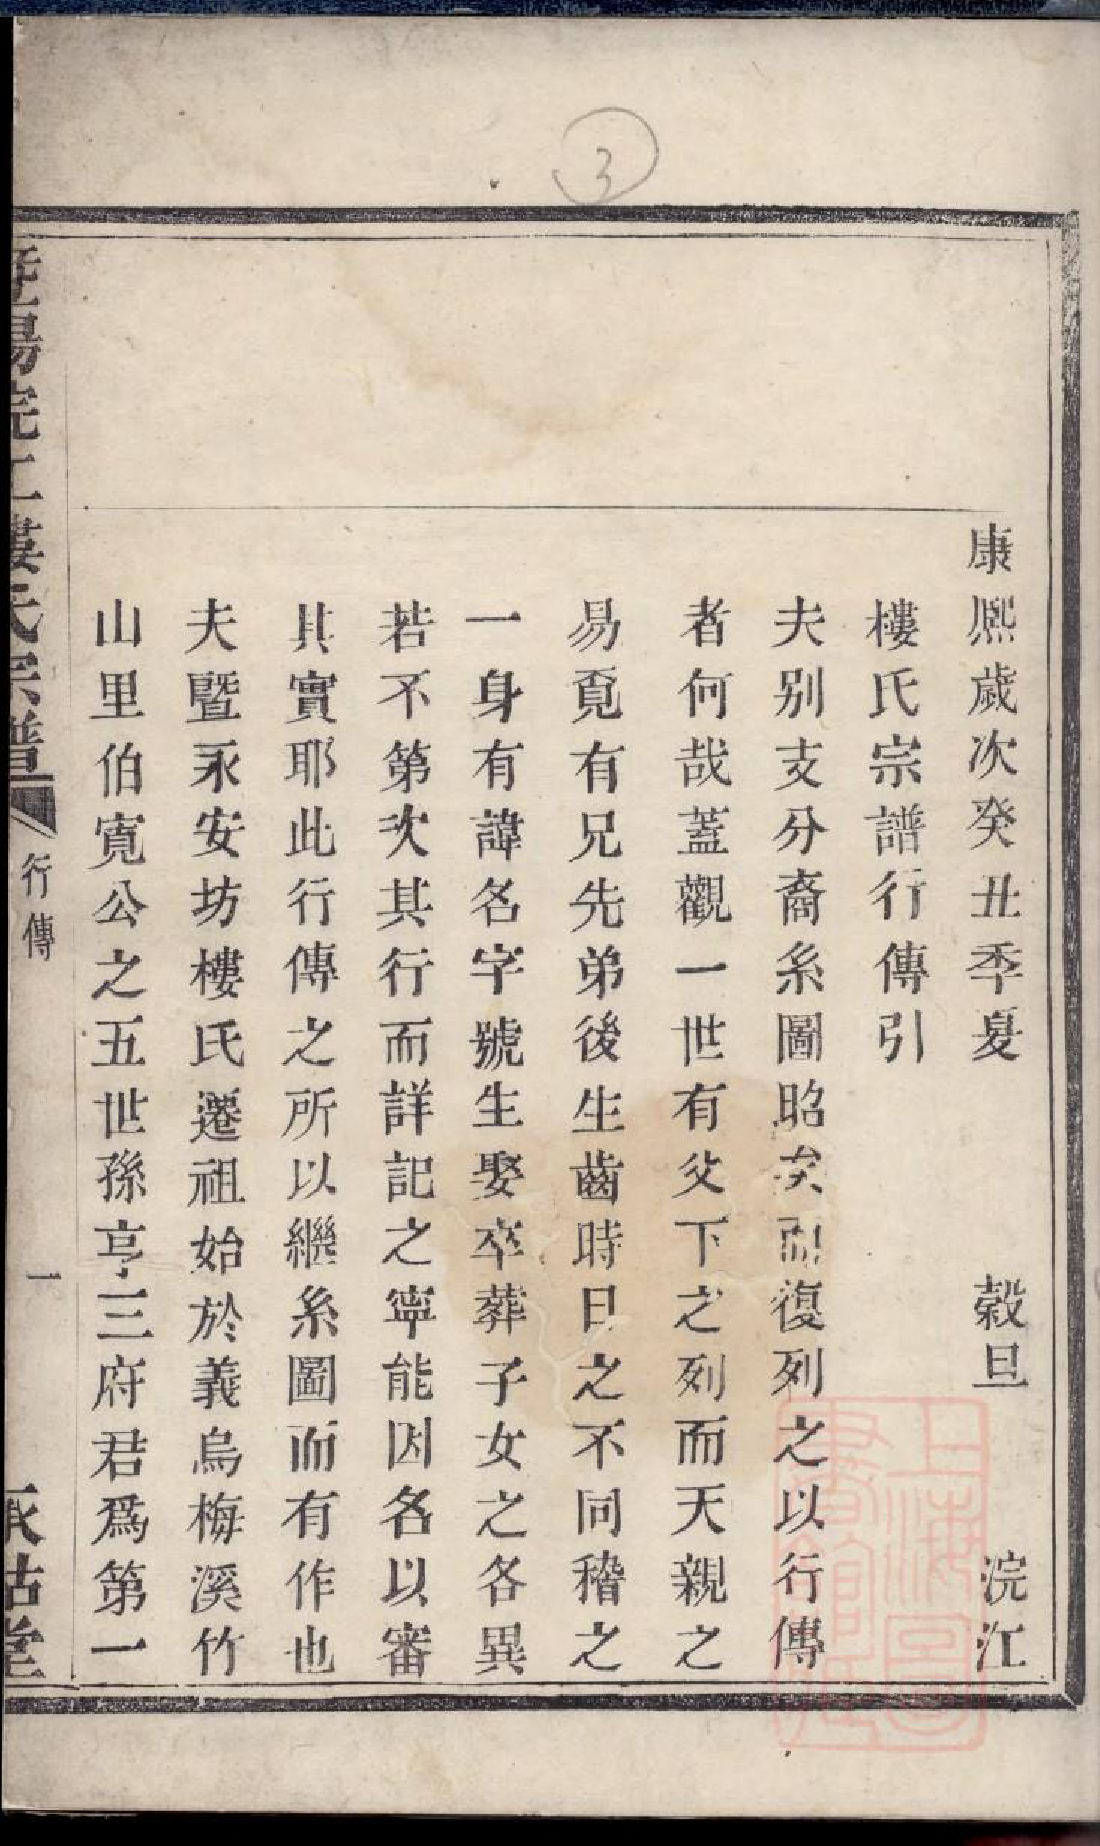 3
康熈歲次癸丑季夏　穀旦　浣江
樓氏宗譜行傳引
夫别支分裔系圖昭矣而復列之以行傳
者何哉蓋觀一世有父下之列而天親之
易覔有兄先弟後生齒時日之不同稽之
一身有諱名字號生娶卒葬子女之各異
若不第次其行而詳記之寧能因名以審
其實耶此行傳之所以繼系圖而有作也
夫暨永安坊樓氏遷祖始於義烏梅溪竹
山里伯寬公之五世孫亨三府君爲第一
暨陽浣江樓氏宗譜　行傳　一　堂
上海圖書館藏